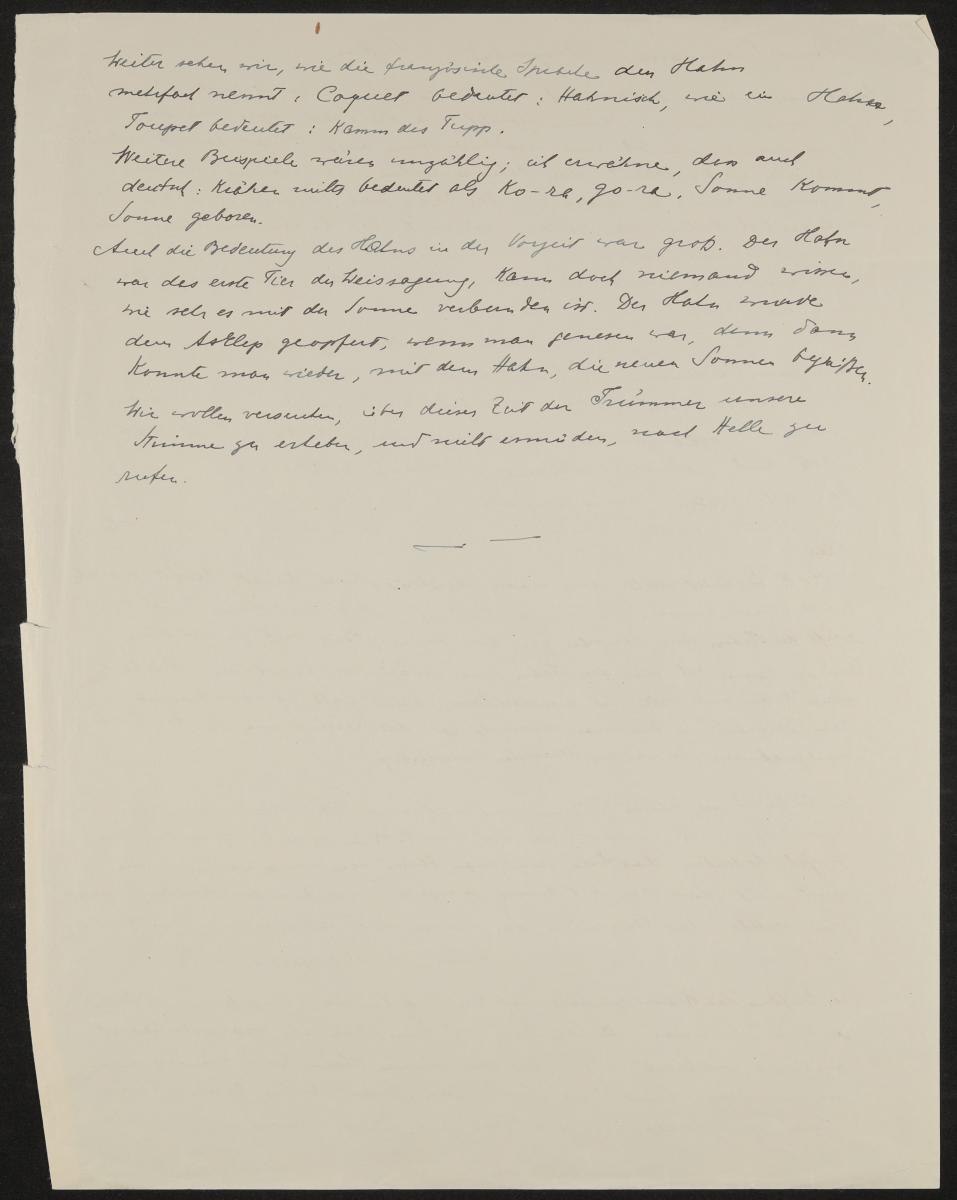 Weiter sehen wir, wie die französische Sprache den Hahn
mehrfach nennt: Coquet bedeutet: Hahnisch, wie ein Hahn,
Toupet bedeutet: Kamm des Tupp.
Weitere Beispiele wären unzählig; ich erwähne, dass auch
deutsch: Krähen nichts bedeutet als Ko-ra, go-ra. Sonne kommt,
Sonne geboren.
Auch die Bedeutung des Hahns in der Vorzeit war groß. Der Hahn
war das erste Tier der Weissagung, kann doch niemand wissen,
wie sehr es mit der Sonne verbunden ist. Der Hahn wurde
dem Asklep geopfert, wenn man genesen war, denn dann
konnte man wieder, mit dem Hahn, die neuen Sonnen begrüßen.
Wir wollen versuchen, über dieser Zeit der Trümmer unsere
Stimme zu erheben, und nicht ermüden, nach Helle zu
rufen.